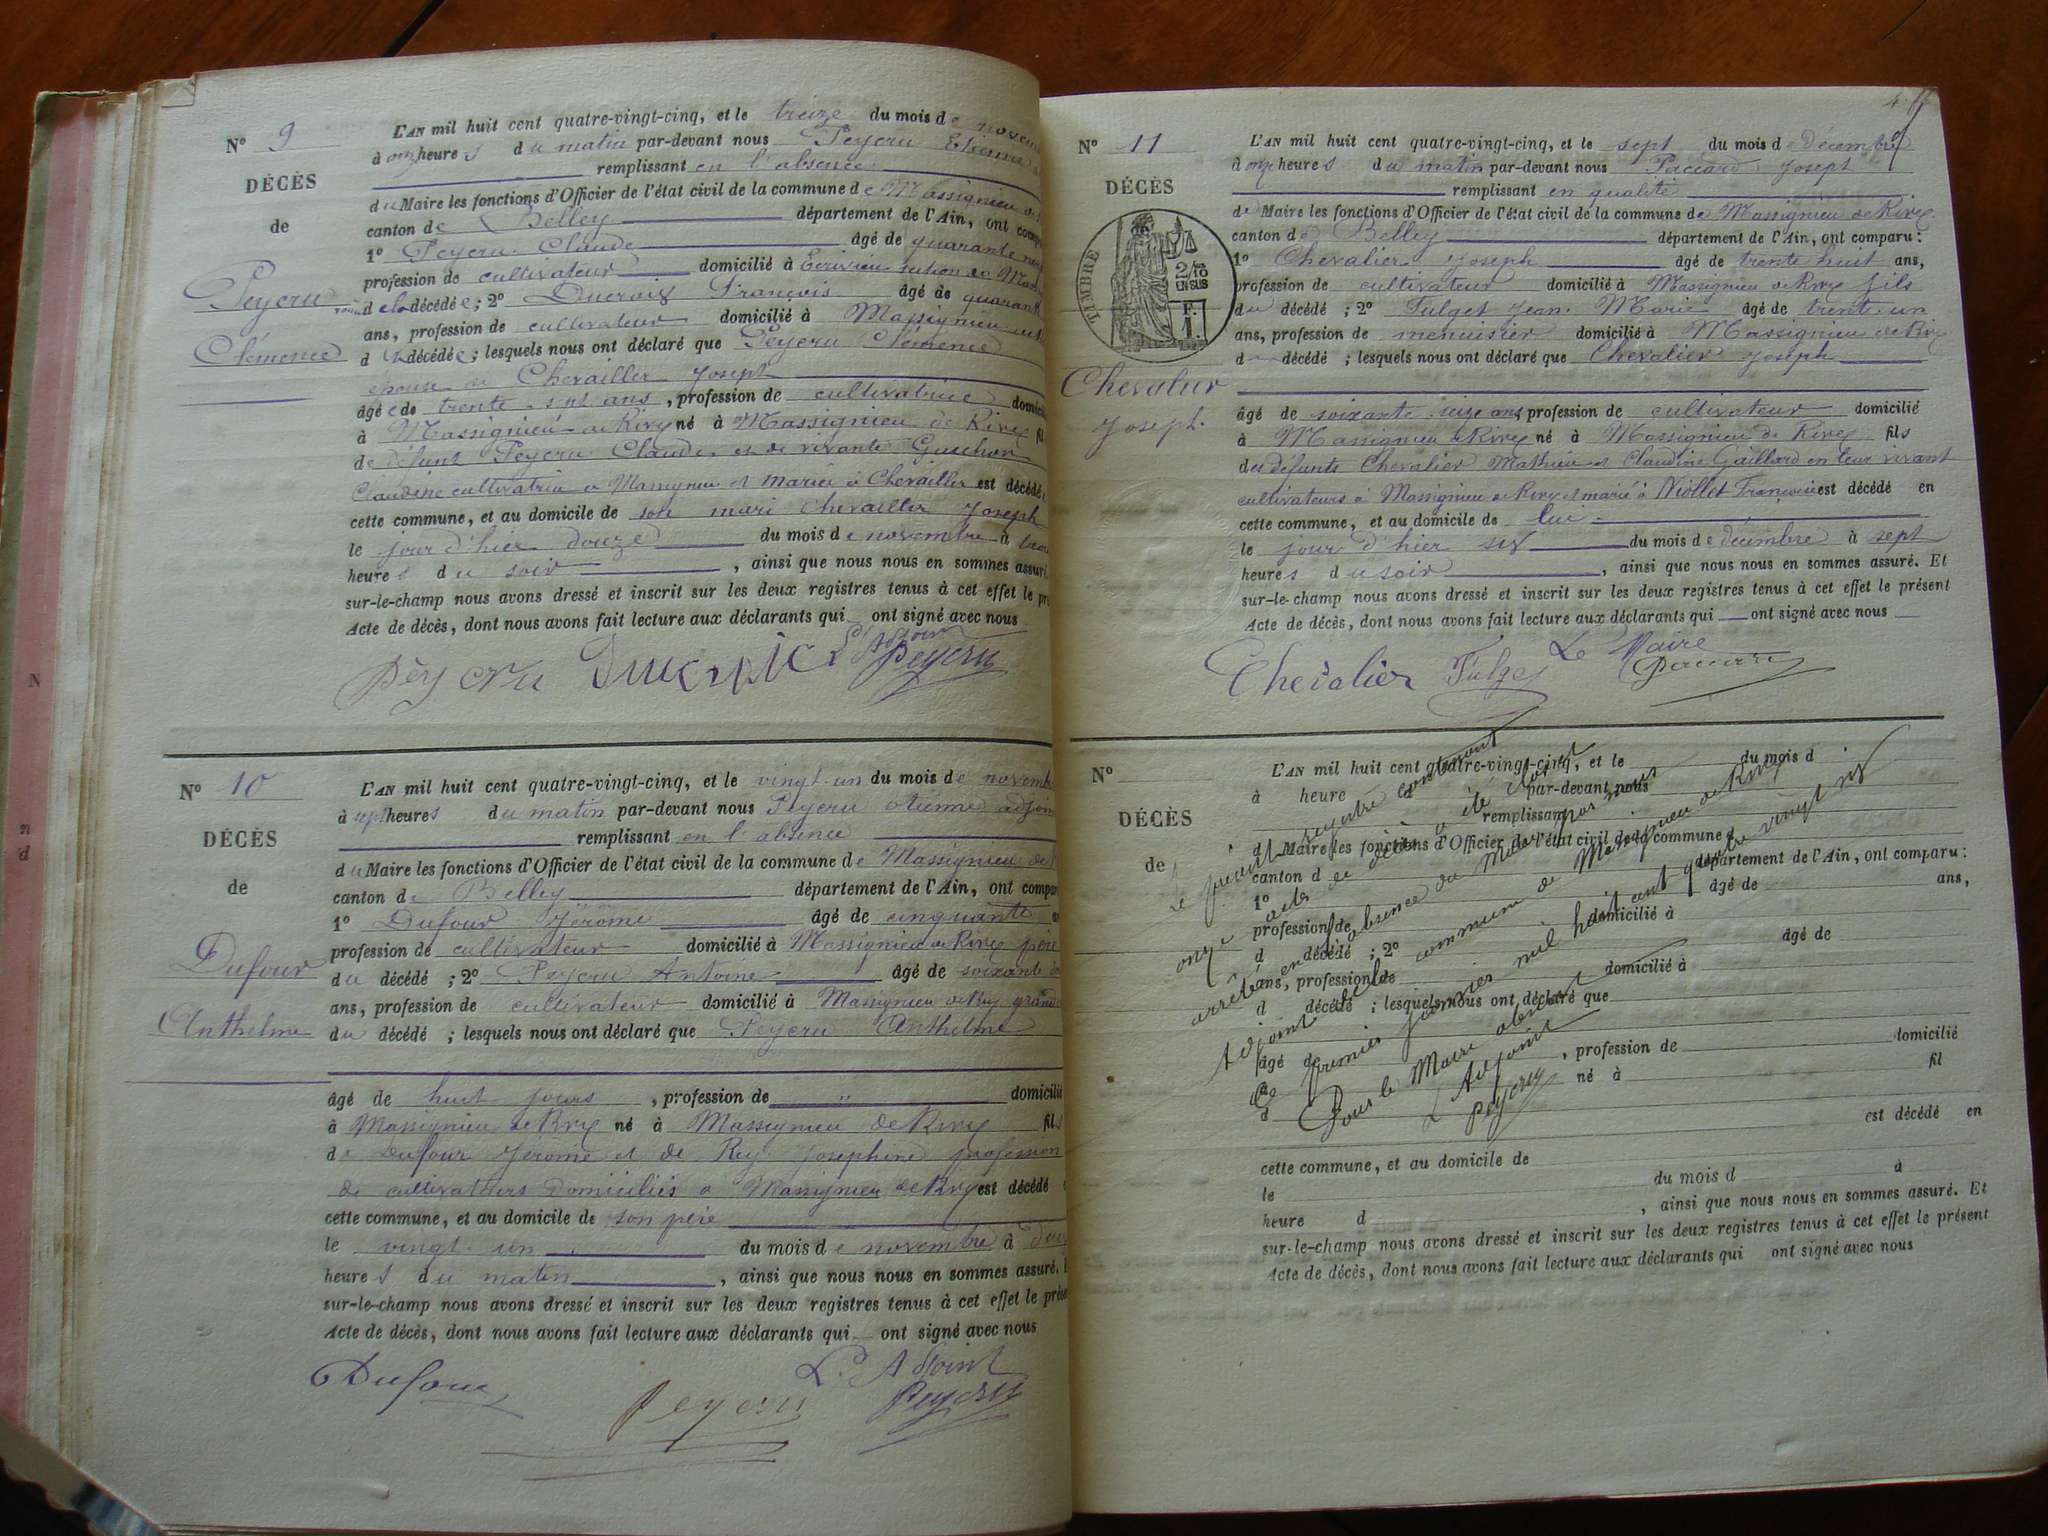 Nº 9
DÉCÈS
de
Peyeru
Clémence
L'AN mil huit cent quatre-vingt-cinq, et le treize du mois de
à onze heures du matin par-devant nous Peyeru Etienne
remplissant en l'absence
du Maire les fonctions d'Officier de l'état civil de la commune de Massignieu de
canton de Belley département de l'Ain, ont
1º Peyeru Claude âgé de quarante
profession de cultivateur domicilié à section de
d décédée ; 2º Ducroix François âgé de
ans, profession de cultivateur domicilié à Massignieu
d décédée ; lesquels nous ont déclaré que Peyeru Clémence
épouse de Chevailler Joseph
âgée de trente-sept ans, profession de cultivatrice
à Massignieu de Rives né à Massignieu de Rives
de défunt Peyeru Claude et de vivante
Claudine cultivatrice à Massignieu et mariée à Chevailler est décédée
cette commune, et au domicile de son mari Chevailler Joseph
le jour d'hier douze du mois de novembre à
heures du soir, ainsi que nous nous en sommes assuré.
sur-le-champ nous avons dressé et inscrit sur les deux registres tenus à cet effet le
Acte de décès, dont nous avons fait lecture aux déclarants qui ont signé avec nous
L'Adjoint
Peyeru Ducroix Peyeru
Nº 10
DÉCÈS
de
Dufour
Anthelme
L'AN mil huit cent quatre-vingt-cinq, et le vingt-un du mois de
à sept heures du matin par-devant nous Peyeru Etienne
remplissant en l'absence
du Maire les fonctions d'Officier de l'état civil de la commune de Massignieu de
canton de Belley département de l'Ain, ont
1º Dufour Jérôme âgé de cinquante
profession de cultivateur domicilié à Massignieu de Rives père
du décédé ; 2º Peyeru Antoine âgé de soixante
ans, profession de cultivateur domicilié à Massignieu de Rives
du décédé ; lesquels nous ont déclaré que Peyeru Anthelme
âgé de huit jours, profession de " domicilié
à Massignieu de Rives né à Massignieu de Rives fils
de Dufour Jerome et de Rey Josephine profession
de cultivateurs domiciliés à Massignieu de Rives est décédé
cette commune, et au domicile de son père
le vingt-un du mois de novembre à
heures du matin, ainsi que nous nous en sommes assuré.
sur-le-champ nous avons dressé et inscrit sur les deux registres tenus à cet effet le
Acte de décès, dont nous avons fait lecture aux déclarants qui ont signé avec nous
L'Adjoint
Dufour Peyeru Peyeru
Nº 11
DÉCÈS
TIMBRE
2/10 EN SUS
F. 1.
Chevalier
Joseph.
L'AN mil huit cent quatre-vingt-cinq, et le sept du mois de Décembre
à onze heures du matin par-devant nous Paccard Joseph
remplissant en qualité
de Maire les fonctions d'Officier de l'état civil de la commune de Massignieu de Rives
canton de Belley département de l'Ain, ont comparu :
1º Chevalier Joseph âgé de trente huit ans,
profession de cultivateur domicilié à Massignieu de Rives fils
du décédé ; 2º Fulget Jean-Marie âgé de trente-un
ans, profession de menuisier domicilié à Massignieu de Rives
d décédé ; lesquels nous ont déclaré que Chevalier Joseph
âgé de soixante-seize ans, profession de cultivateur domicilié
à Massignieu de Rives né à Massignieu de Rives fils
des défunts Chevalier Mathieu et Claudine Gaillard en leur vivant
cultivateurs à Massignieu de Rives et marié à Niollet Françoise est décédé en
cette commune, et au domicile de lui
le jour d'hier six du mois de décembre à sept
heures du soir, ainsi que nous nous en sommes assuré. Et
sur-le-champ nous avons dressé et inscrit sur les deux registres tenus à cet effet le présent
Acte de décès, dont nous avons fait lecture aux déclarants qui ont signé avec nous
Le Maire
Chevalier Fulget Paccard
Nº
DÉCÈS
de
L'AN mil huit cent quatre-vingt-cinq, et le du mois d
à heure d par-devant nous
remplissant
d Maire les fonctions d'Officier de l'état civil de la commune d
canton d département de l'Ain, ont comparu :
1º âgé de ans,
profession de domicilié à
d décédé ; 2º âgé de
ans, profession de domicilié à
d décédé ; lesquels nous ont déclaré que
âgé de, profession de domicilié
à né à fil
d est décédé en
cette commune, et au domicile de
le du mois d à
heure d, ainsi que nous nous en sommes assuré. Et
sur-le-champ nous avons dressé et inscrit sur les deux registres tenus à cet effet le présent
Acte de décès, dont nous avons fait lecture aux déclarants qui ont signé avec nous
Le présent registre contenant
onze actes de décès a été clos et
arrêté en absence du Maire par nous
Adjoint de la commune de Massignieu de Rives
Le premier janvier mil huit cent quatre vingt six
Pour le Maire absent
L'Adjoint
Peyeru